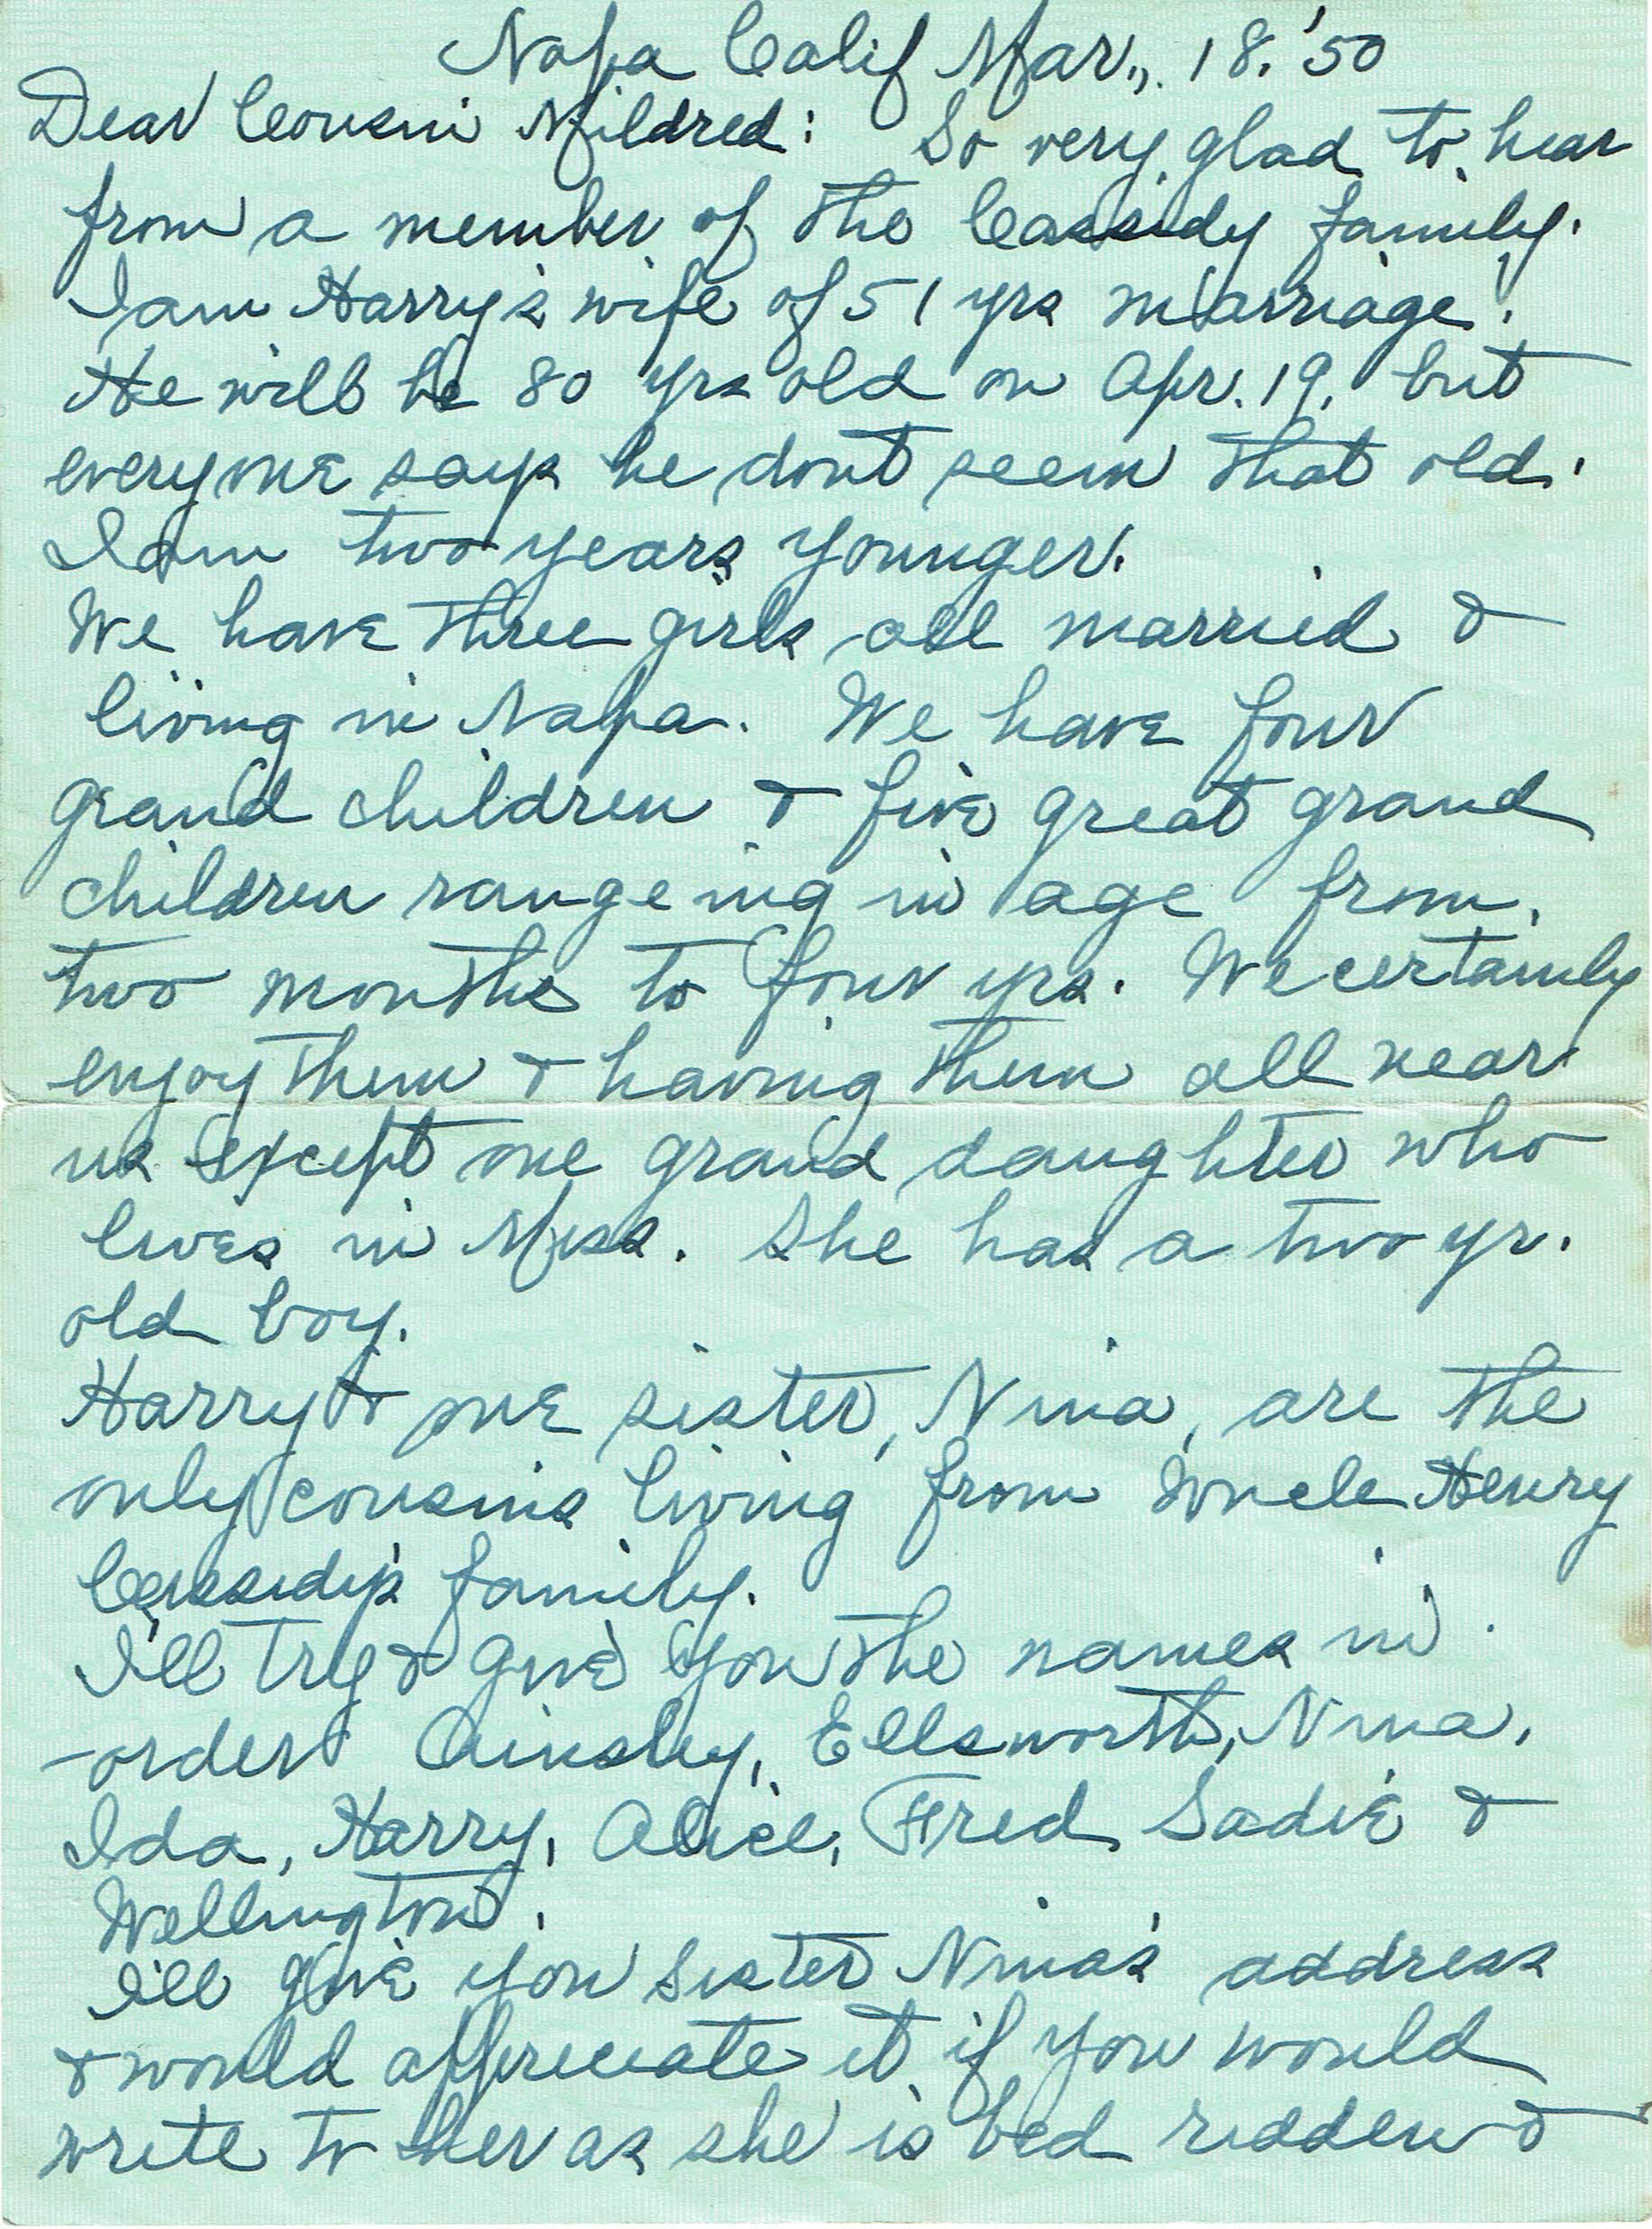 Napa Calif Mar., 18, '50
Dear Cousin Mildred: So very glad to hear
from a member of the Cassidy family.
I am Harry's wife of 51 yrs marriage.
He will be 80 yrs old on Apr. 19, but
everyone says he dont seem that old.
I am two years younger.
We have three girls all married &
living in Napa. We have four
grand children & five great grand
children rangeing in age from
two months to four yrs. We certainly
enjoy them & having them all near
us except one grand daughter who
lives in Miss. She has a two yr.
old boy.
Harry & one sister, Nina, are the
only cousins living from Uncle Henry
Cassidy's family.
I'll try & give you the names in
order Ainsley, Ellsworth, Nina,
Ida, Harry, Alice, Fred, Sadie &
Wellington.
I'll give you sister Nina's address
& would appreciate it if you would
write to her as she is bed ridden &